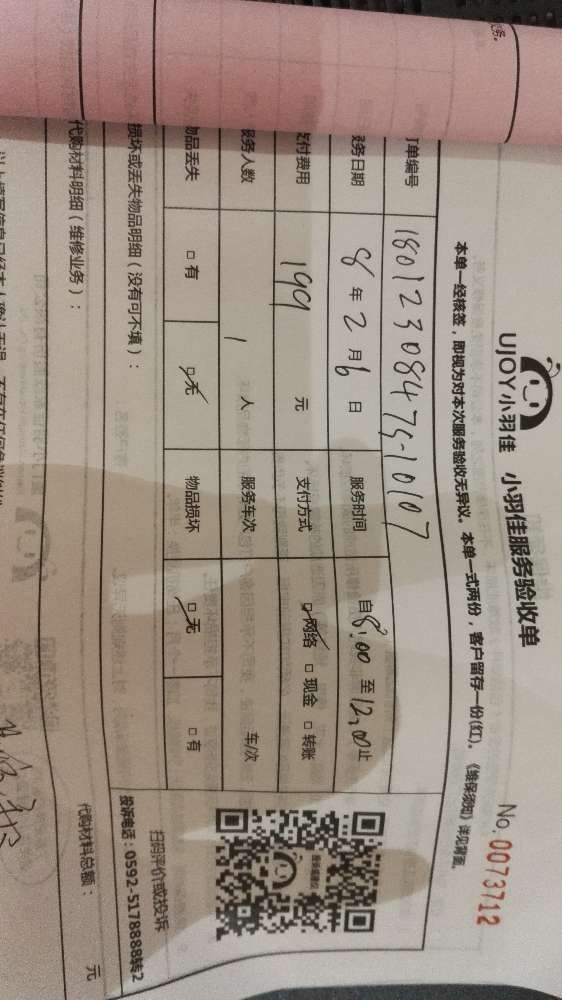 UJOY小羽佳 小羽佳服务验收单
No. 0073712
本单一经核签，即视为对本次服务验收无异议。本单一式两份，客户留存一份(红)。《维保须知》详见背面。
订单编号 18012308475-10107
服务日期 8 年 2 月 6 日 服务时间 自 8:00 至 12:00 止
支付费用 199 元 支付方式 网络 现金 转账
服务人数 1 人 服务车次 车/次
物品丢失 有 无 物品损坏 无 有
扫码评价或投诉
投诉电话：0592-5178888转2
损坏或丢失物品明细（没有可不填）：
代购材料明细（维修业务）：
代购材料总额： 元